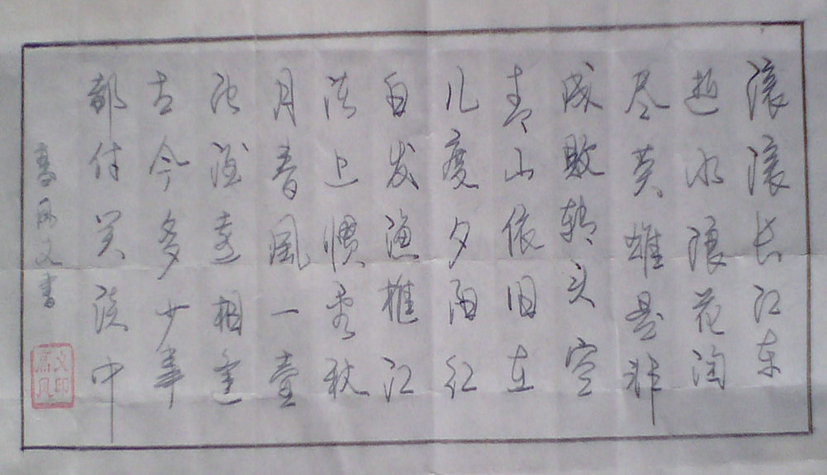 滚滚长江东
逝水浪花淘
尽英雄是非
成败转头空
青山依旧在
几度夕阳红
白发渔樵江
渚上惯看秋
月春风一壶
浊酒喜相逢
古今多少事
都付笑谈中
文书